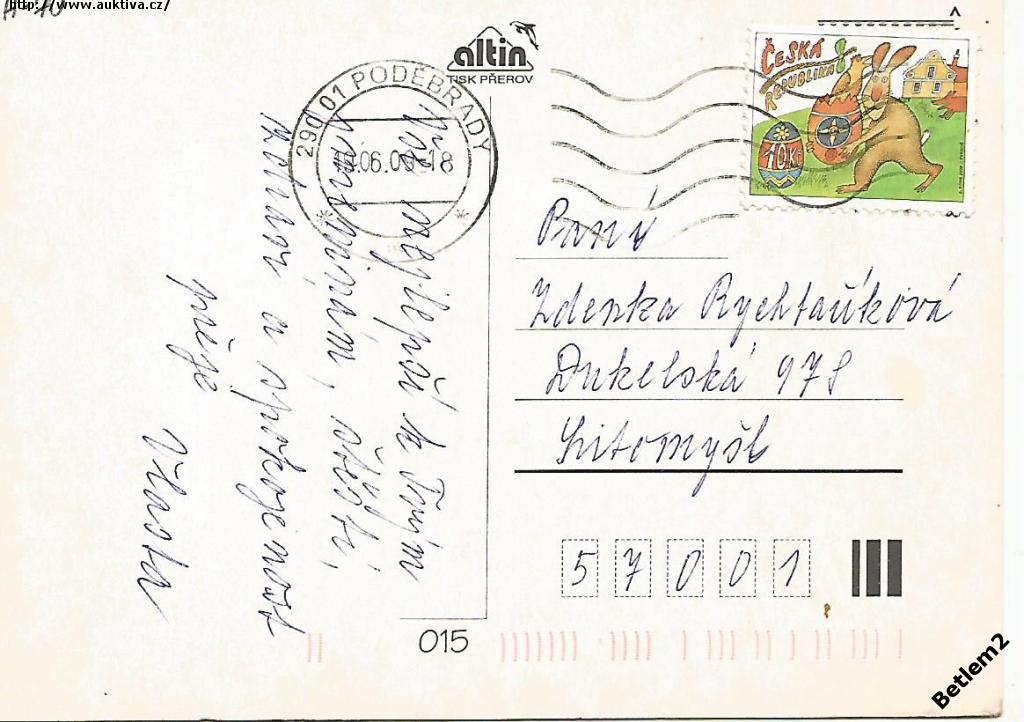 http://www.auktiva.cz/
altin
TISK PŘEROV
290 01 PODĚBRADY
.06.0 -18
ČESKÁ
REPUBLIKA
10Kč
Vše nejlepší k Tvým
narozeninám, štěstí,
zdraví a spokojenost
přeje
Vlasta
Paní
Zdenka Rychtaříková
Dukelská 978
Litomyšl
57001
015
Betlem2